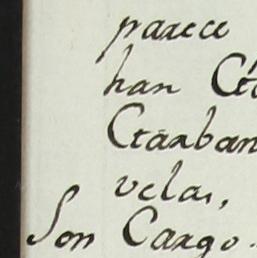 parece
han Cta
Ctarban
velas,
Son Cargo.